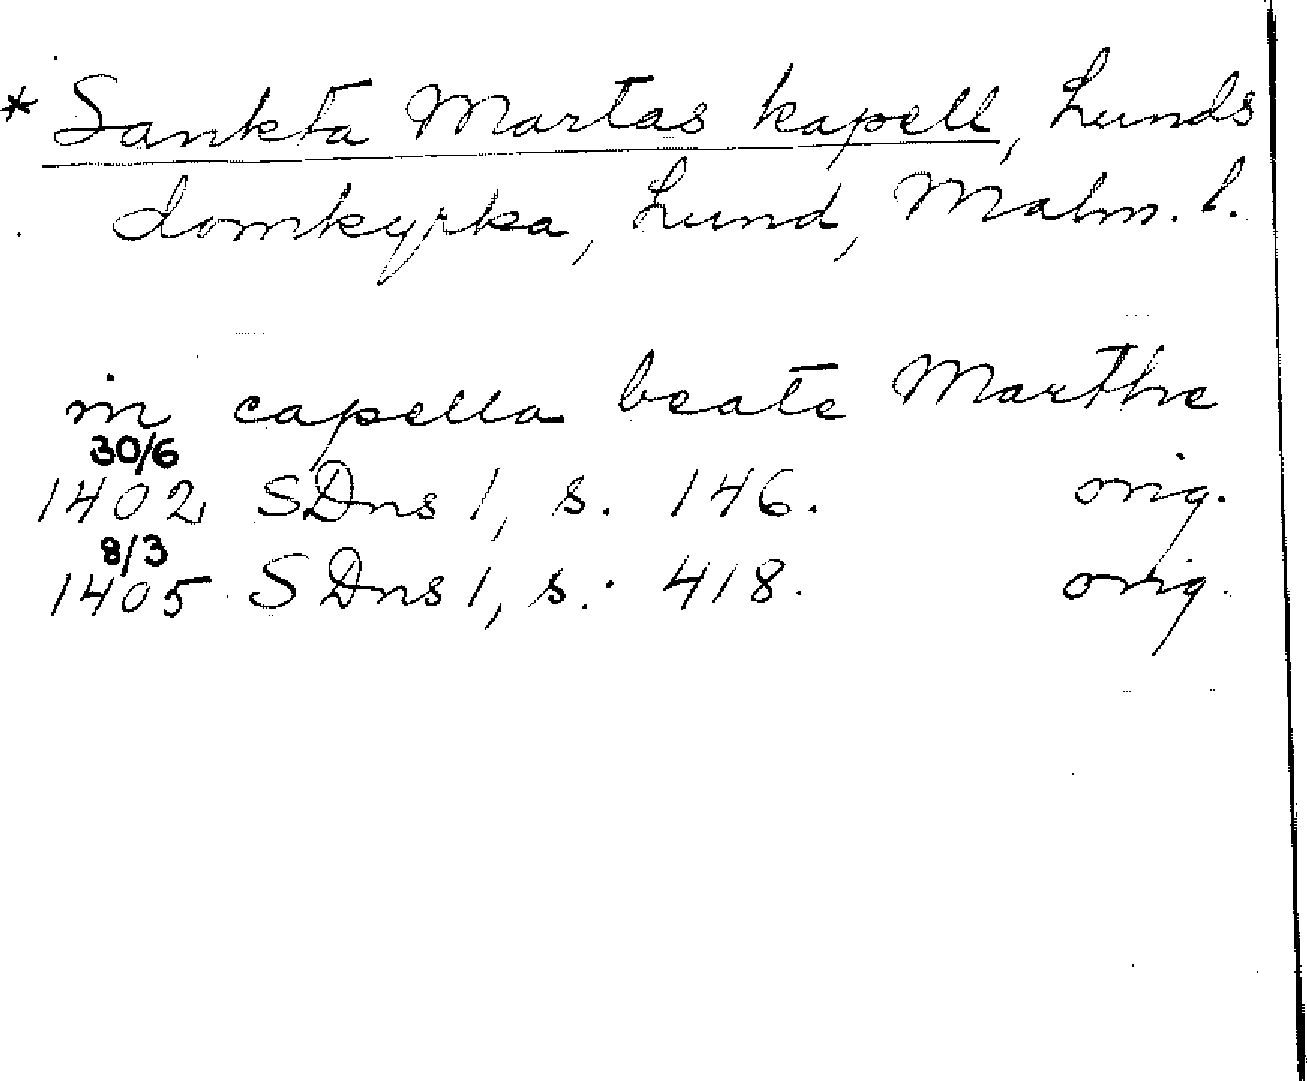 * Sankta Martas kapell, Lunds
domkyrka, Lund, Malm. l.
in capella beate Marthe
30/6
1402 SDns 1, s. 146. orig.
8/3
1405 SDns 1, s. 418. orig.